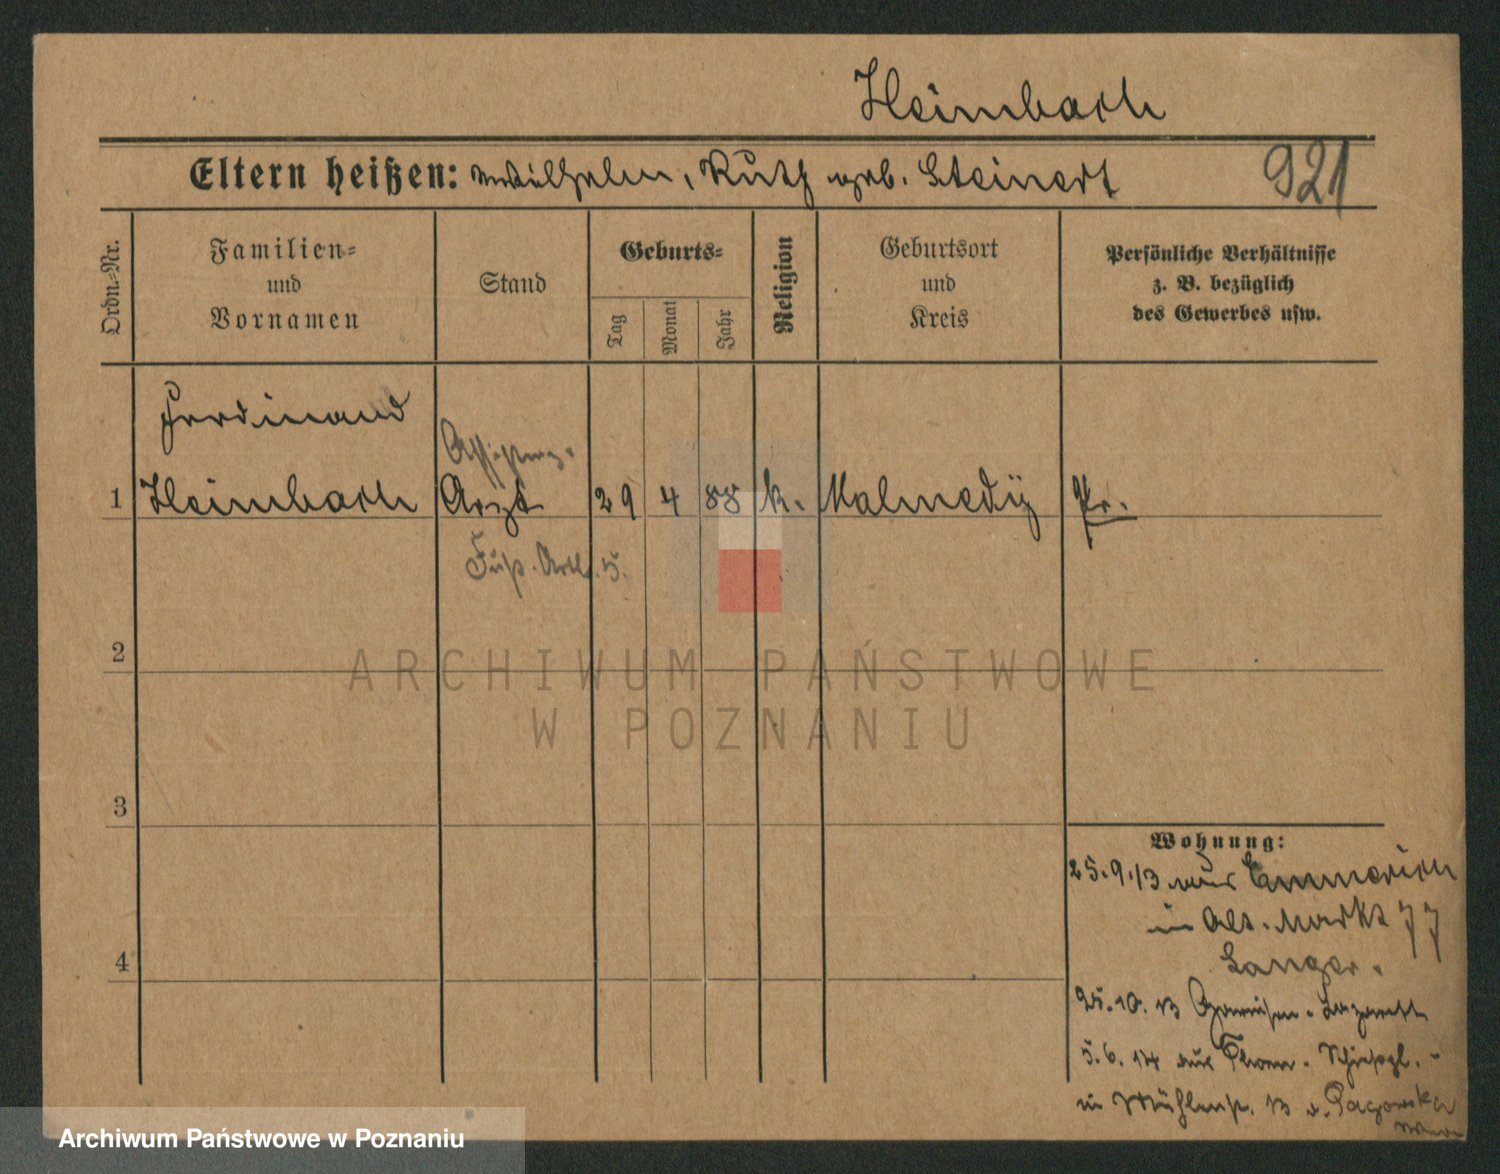 Heimbach
Eltern heißen: Wilhelm, Ruth geb. Steinert
921
Ordn.-Nr.
Familien- und Vornamen
Stand
Geburts-
Tag
Monat
Jahr
Religion
Geburtsort und Kreis
Persönliche Verhältnisse z. B. bezüglich des Gewerbes usw.
Ferdinand
Assistenz-
1 Heimbach Arzt 29 4 88 k. Malmedÿ Pr.
Fuß. Artl. 5.
2
3
4
Wohnung:
25.9.13 aus Emmerich
in Alt. Markt 77
Langer.
25.10.13 Garnison-Lazarett
5.6.14 aus Thorn-Schießpl.
in Mühlenstr. 13 v. Pagowska
ARCHIWUM PAŃSTWOWE
W POZNANIU
Archiwum Państwowe w Poznaniu